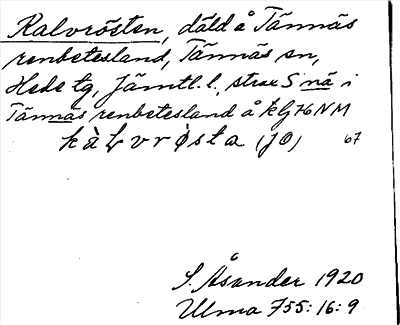 Kalvrösten, däld å Tännäs
renbetesland, Tännäs sn,
Hede tg, Jämtl. l., strax S nä i
Tännäs renbetesland å kbl 76 NM
kàɫvrösta (JÖ) 67
S. Åsander 1920
Ulma 755:16:9